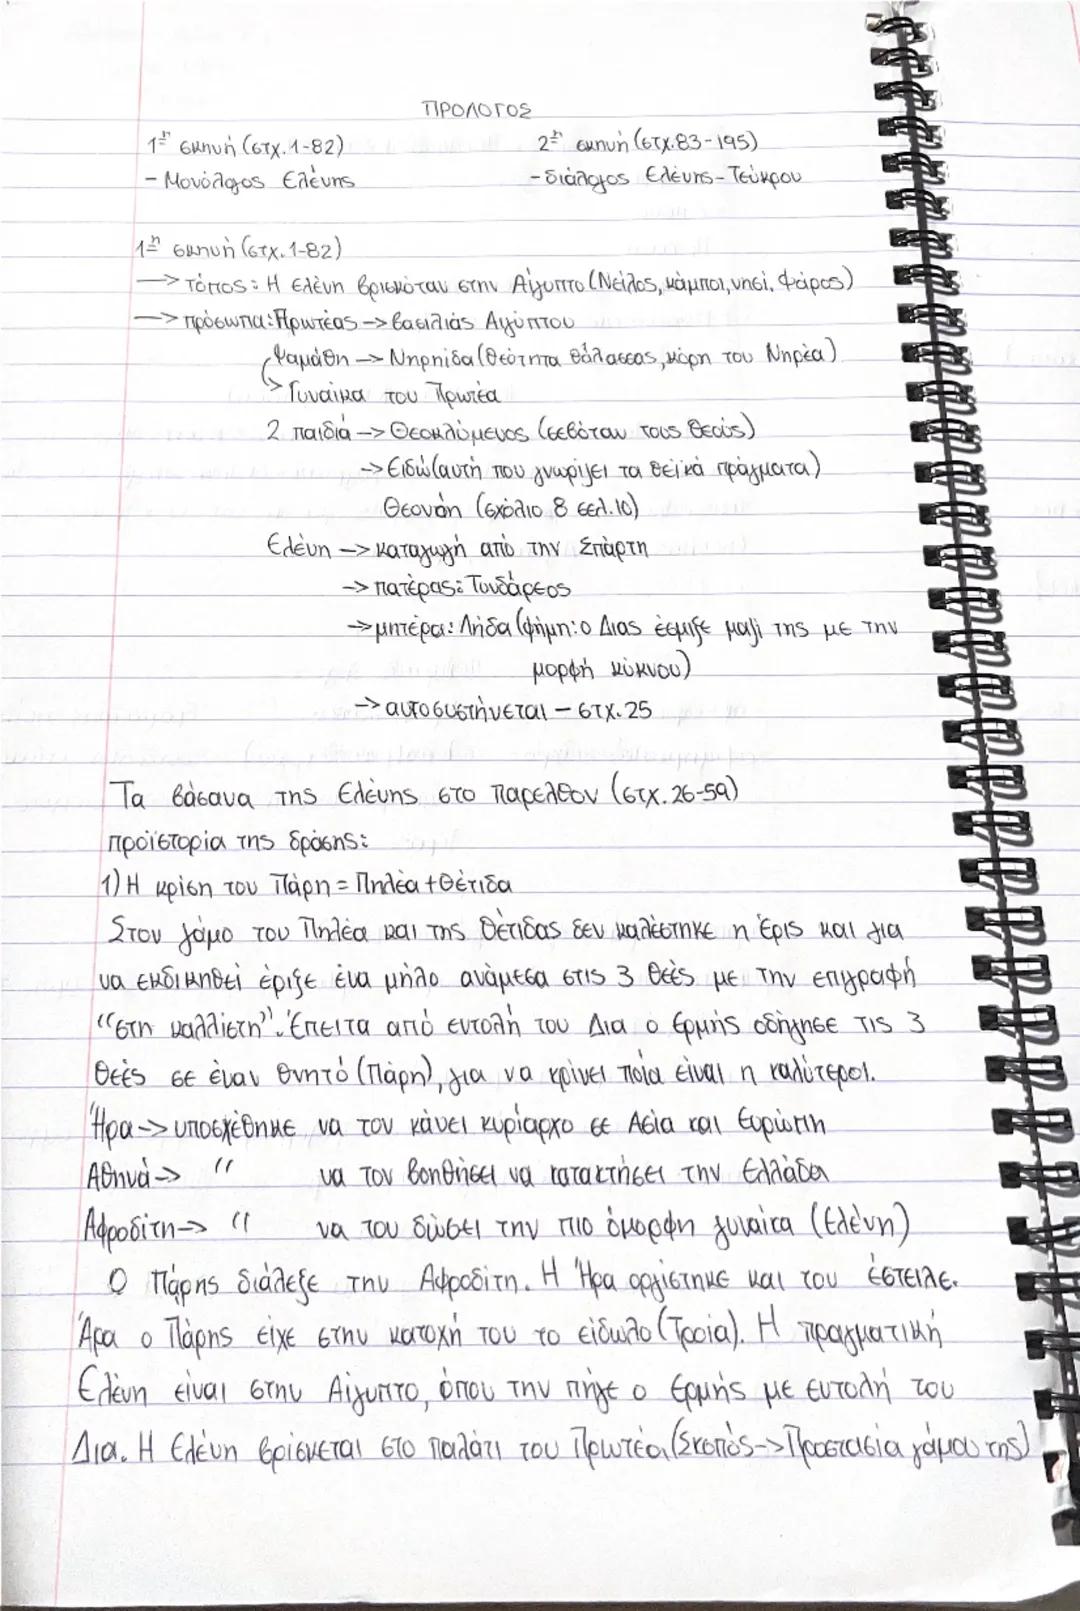 ΠΡΟΛΟΓΟΣ
1η σκηνή (στχ. 1-82)
2η σκηνή (στχ. 83-195)
- Μονόλογος Ελένης
- διάλογος Ελένης - Τεύκρου
1η σκηνή (στχ. 1-82)
—> τόπος: Η Ελένη βρισκόταν στην Αίγυπτο (Νείλος, κάμποι, νησί, Φάρος)
—> πρόσωπα: Πρωτέας -> βασιλιάς Αιγύπτου
Ψαμάθη -> Νηρηίδα (θεότητα θάλασσας, κόρη του Νηρέα)
-> Γυναίκα του Πρωτέα
2 παιδιά -> Θεοκλύμενος (σεβόταν τους θεούς)
-> Ειδώ (αυτή που γνωρίζει τα θεϊκά πράγματα)
Θεονόη (σχόλιο 8 σελ. 10)
Ελένη -> καταγωγή από την Σπάρτη
-> πατέρας: Τυνδάρεος
-> μητέρα: Λήδα (φήμη: ο Δίας έσμιξε μαζί της με την
μορφή κύκνου)
-> αυτοσυστήνεται - στχ. 25
Τα βάσανα της Ελένης στο παρελθόν (στχ. 26-59)
προϊστορία της δράσης:
1) Η κρίση του Πάρη = Πηλέα + Θέτιδα
Στον γάμο του Πηλέα και της Θέτιδας δεν καλέστηκε η Έρις και για
να εκδικηθεί έριξε ένα μήλο ανάμεσα στις 3 θεές με την επιγραφή
"στη καλλίστη". Έπειτα από εντολή του Δία ο Ερμής οδήγησε τις 3
θεές σε έναν θνητό (Πάρη), για να κρίνει ποια είναι η καλύτερη.
Ήρα -> υποσχέθηκε να τον κάνει κυρίαρχο σε Ασία και Ευρώπη
Αθηνά -> " να τον βοηθήσει να κατακτήσει την Ελλάδα
Αφροδίτη -> " να του δώσει την πιο όμορφη γυναίκα (Ελένη)
Ο Πάρης διάλεξε την Αφροδίτη. Η Ήρα οργίστηκε και του έστειλε.
Άρα ο Πάρης είχε στην κατοχή του το είδωλο (Τροία). Η πραγματική
Ελένη είναι στην Αίγυπτο, όπου την πήγε ο Ερμής με εντολή του
Δία. Η Ελένη βρίσκεται στο παλάτι του Πρωτέα (Σκοπός -> Προστασία γάμου της)